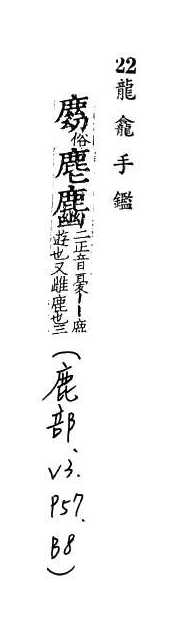 22 龍龕手鑑
俗麀二正音憂||鹿遊也又雌鹿也三(鹿部、V3.P57.B8)